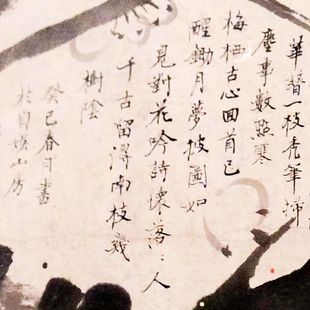 華替一枝秃筆掃
塵事數點寒
梅栖古心回首已
醒鋤月夢披圖如
見對花吟詩懷落〻人
千古留淂南枝幾
樹陰
癸巳春日書
於自娱山房